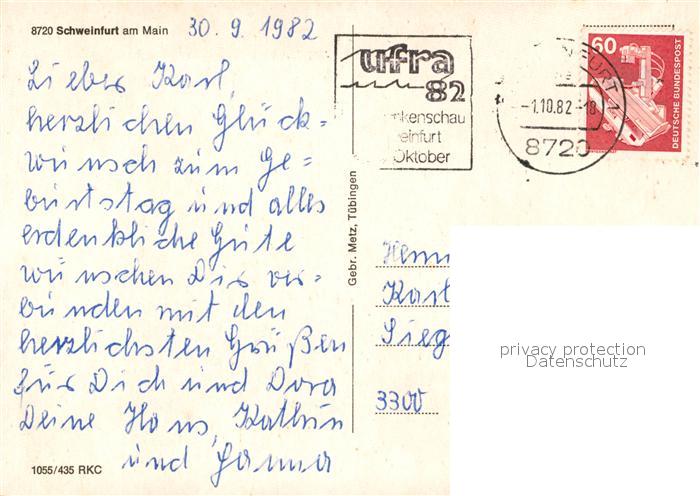 8720 Schweinfurt am Main
30. 9. 1982
Lieber Karl,
herzlichen Glück=
wunsch zum Ge=
burtstag und alles
erdenkliche Gute
wünschen Dir ver=
bunden mit den
herzlichsten Grüßen
für Dich und Dora
Deine Hans, Kathrin
und
1055/435 RKC
Gebr. Metz, Tübingen
ufra
82
kenschau
einfurt
Oktober
FURT 1
-1.10.82-18
8720
60
DEUTSCHE BUNDESPOST
Herrn
Karl
Sieg
3300
privacy protection
Datenschutz